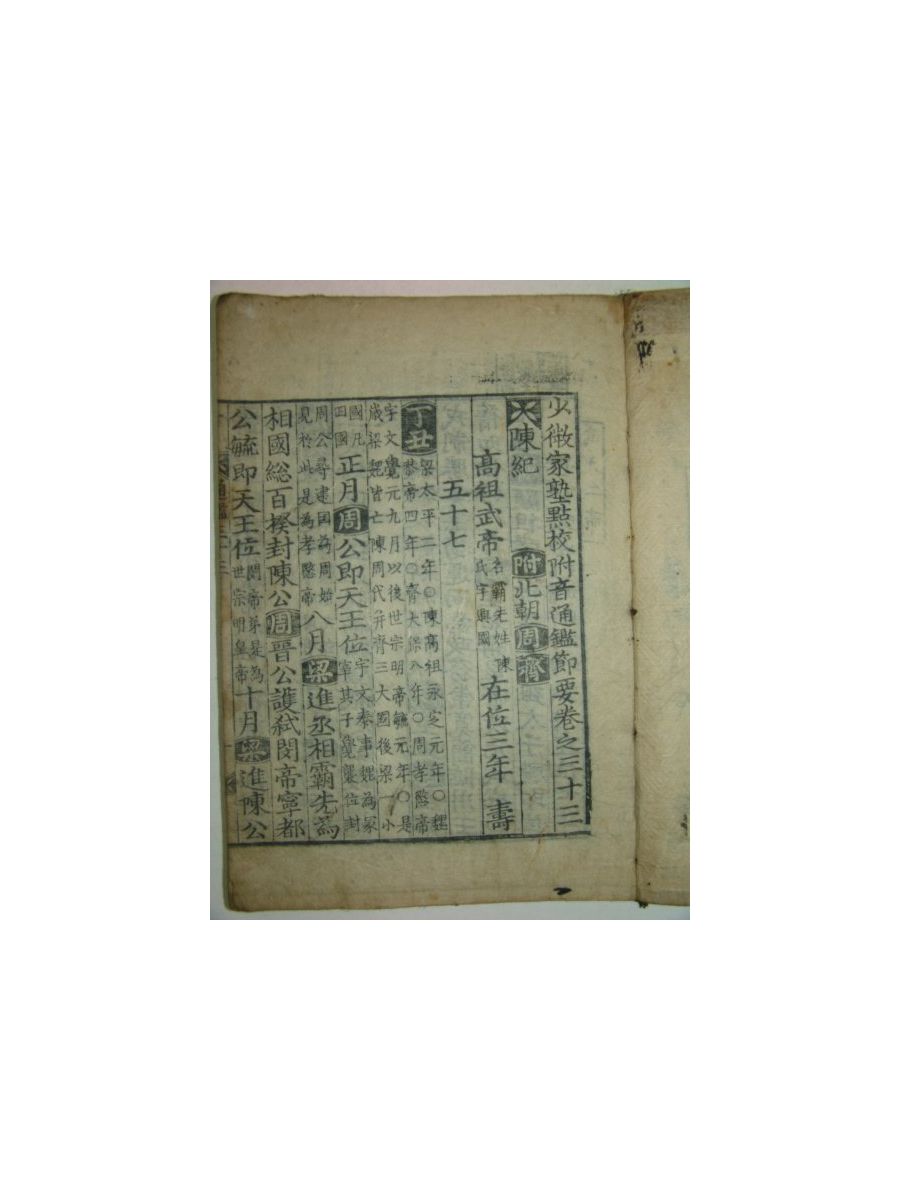 少微家塾點校附音通鑑節要卷之三十三
陳紀 附北朝周齊
高祖武帝 名霸先姓陳氏字興國 在位三年 壽
五十七
丁丑 梁太平二年〇陳高祖永定元年〇魏恭帝四年〇齊天保八年〇周孝愍帝
宇文覺元九月以後世宗明帝毓元年〇是歲梁魏皆亡陳周代幷齊三大國後梁一小
國凡四國 正月周公即天王位 宇文泰事魏為冢宰其子覺襲位封
周公尋建國為周始見於此是為孝愍帝 八月梁進丞相霸先為
相國總百揆封陳公周晉公護弑閔帝寧都
公毓即天王位 閔帝弟是為世宗明皇帝 十月梁進陳公